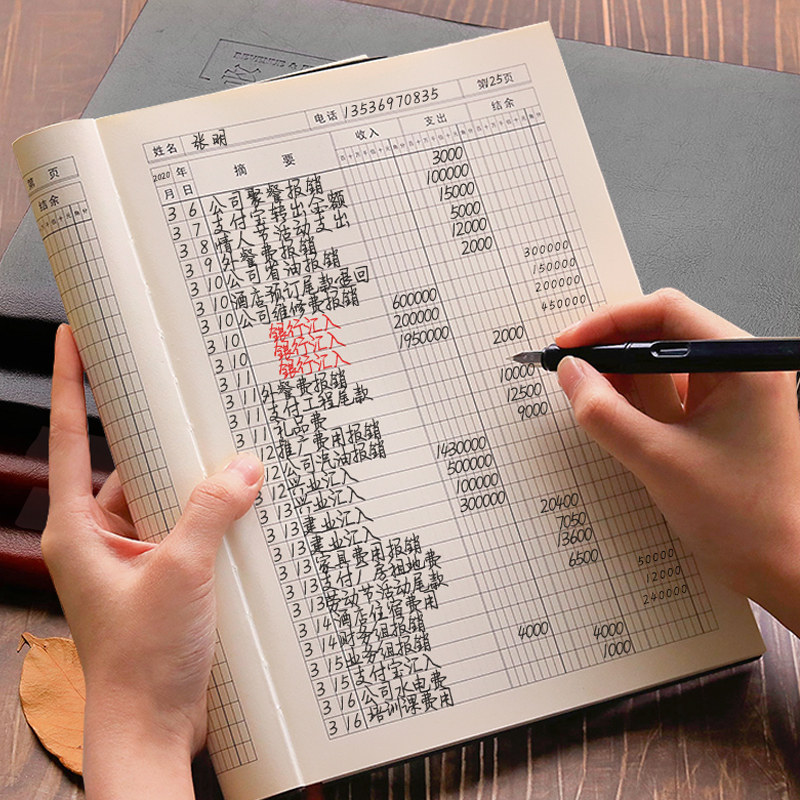 第 页
结余
姓名 张明
电话 13536970835
第25页
2020 年
月 日
摘 要
收入
支出
结余
3 6 公司聚餐报销 3000
3 7 支付宝转出金额 100000
3 8 情人节活动支出 15000
3 9 外餐费报销 5000
3 10 公司有油报销 12000
3 10 酒店预订尾款退回 2000
3 10 公司维修费报销
300000
150000
200000
450000
3 10 银行汇入 600000
3 10 银行汇入 200000
3 11 银行汇入 1950000
3 11 外餐费报销 2000
3 11 支付工程尾款 10000
礼品费 12500
12 推广费用报销 9000
12 公司汽油报销
3 12 兴业汇入 1430000
3 12 兴业汇入 500000
3 13 建业汇入 100000
3 13 建业汇入 300000
3 13 家具费用报销 20400
3 13 支付厂房租地费 7050
3 13 劳动节活动尾款 13600
3 14 酒店住宿费用 6500
3 14 财务组报销 50000
3 15 业务组报销 12000
3 15 支付宝汇入 240000
3 16 公司水电费 4000 4000
3 16 培训课费用 1000